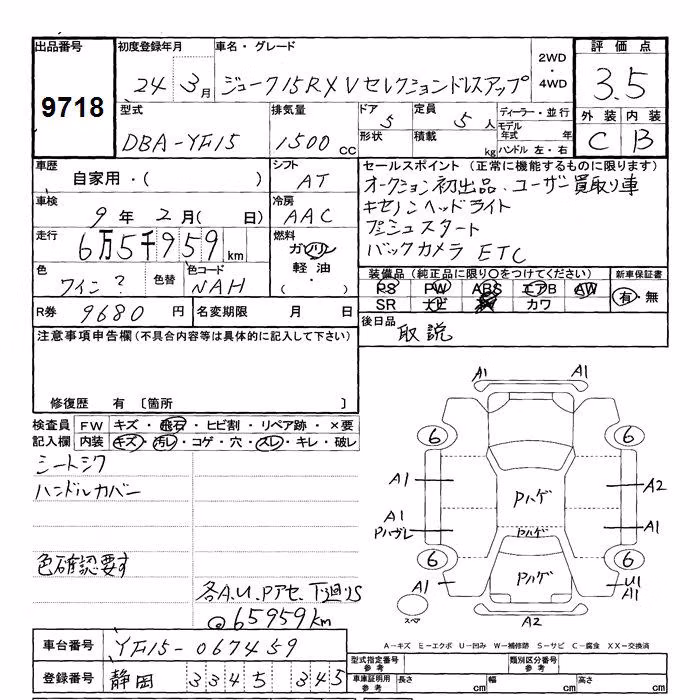 出品番号
9718
初度登録年月
24 3月
車名・グレード
ジューク15RX Vセレクションドレスアップ
2WD
・
4WD
評価点
3.5
外装 内装
C B
型式
DBA-YF15
排気量
1500 cc
ドア
5
形状
定員
5 人
積載
kg
ディーラー・並行
モデル年式 年
ハンドル 左・右
車歴
自家用・( )
シフト
AT
車検
9年 2月( 日)
冷房
AAC
走行
6万5千959km
燃料
ガソリン
軽油
・
( )
色
ワイン?
色替
色コード
NAH
R券 9680 円
名変期限 月 日
セールスポイント(正常に機能するものに限ります)
オークション初出品、ユーザー買取り車
キセノンヘッドライト
プッシュスタート
バックカメラ ETC
装備品(純正品に限り○をつけてください)
PS PW ABS エアB AW
SR ナビ カワ
新車保証書
有・無
後日品
取説
注意事項申告欄(不具合内容等は具体的に記入して下さい)
修復歴 有 〔箇所 〕
検査員記入欄
FW キズ・飛石・ヒビ割・リペア跡・×要
内装 キズ・汚レ・コゲ・穴・スレ・キレ・破レ
シートシワ
ハンドルカバー
色確認要す
各A.U.Pアセ、下廻りS
@65959km
A1 A1
6 6
A1 Pハゲ A2
A1 Pハガレ Pハゲ A1
6 Pハゲ 6
A1 U1 A1
スペア A2
A-キズ E-エクボ U-凹み W-補修跡 S-サビ C-腐食 XX-交換済
車台番号 YF15-067459
登録番号 静岡 3345 345
型式指定番号 参考
類別区分番号 参考
車庫証明用 参考 長さ cm 幅 cm 高さ cm